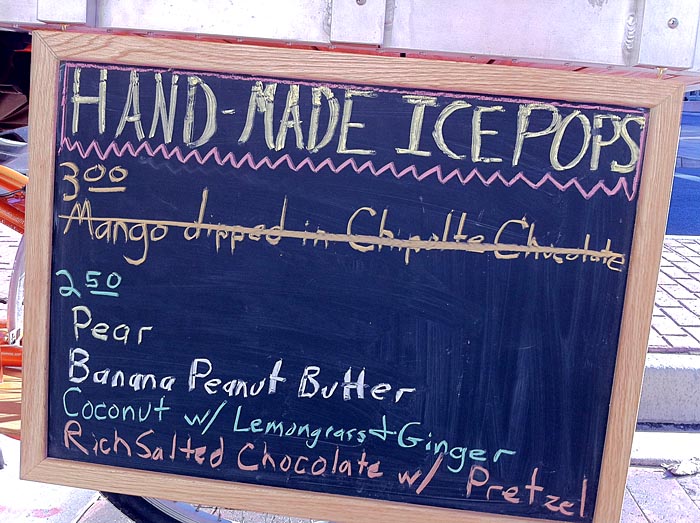 HAND-MADE ICE POPS
3.00
Mango dipped in Chipolte Chocolate
2.50
Pear
Banana Peanut Butter
Coconut w/ Lemongrass & Ginger
Rich Salted Chocolate w/ Pretzel